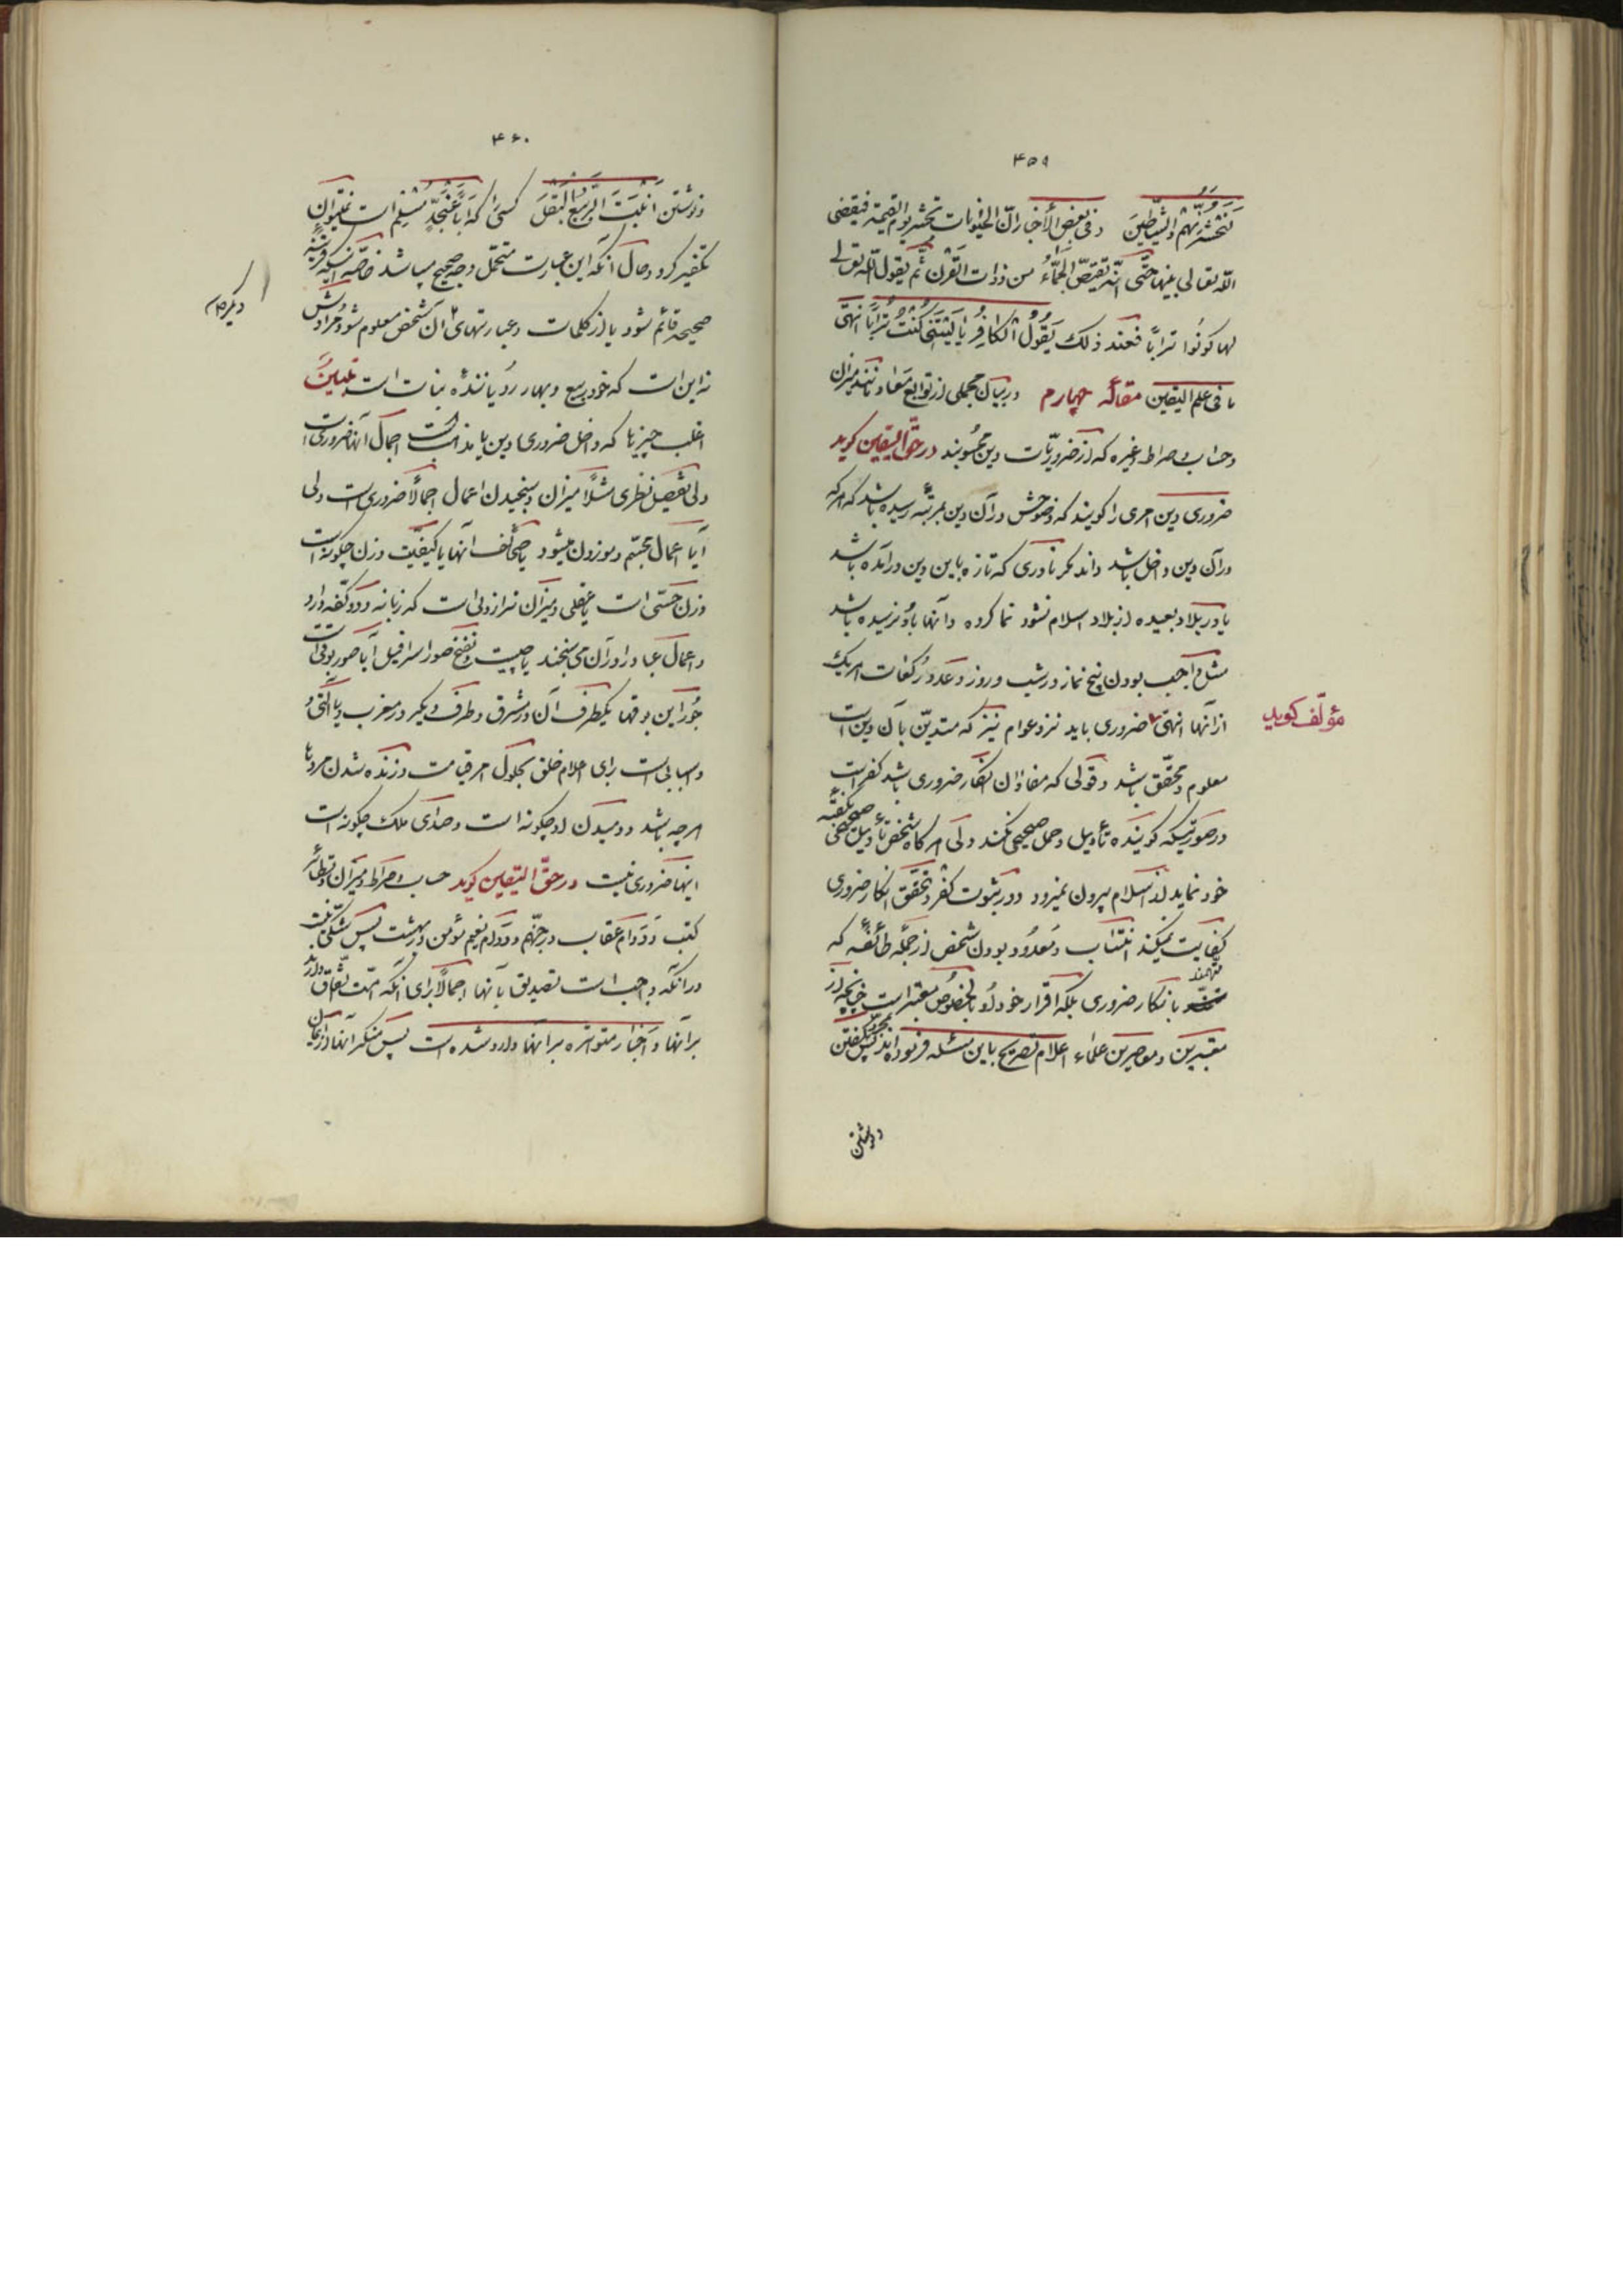 ۴۵۹
لَنَحْشُرَنَّهُمْ وَالشَّیٰطِینَ و فی بعض الأخبار انّ الحیوانات تحشر یوم القیمة فیقضی
اللّه تعالی بینها حتّی انّه تقتصّ الجمّاءُ من ذوات القرن ثمّ یقول اللّه تعالی
لها کونُوا تراباً فعند ذلک یَقُولُ الْکافِرُ یا لَیْتَنی کُنْتُ تُراباً انتهی
ما فی علم الیقین مقالهٔ چهارم در بیان مجملی از توابع معاد مانند میزان
و حساب و صراط و غیره که از ضروریّات دین محسوبند در حقّ الیقین گوید
ضروری دین امری را گویند که وضوحش در آن دین بمرتبهٔ رسیده باشد که هر که
در آن دین داخل باشد داند مگر نادری که تازه باین دین در آمده باشد
یا در بلاد بعیده از بلاد اسلام نشو و نما کرده و آنها باو نرسیده باشد
مثل واجب بودن پنج نماز در شب و روز و عدد رکعات هر یک
از آنها انتهی ضروری باید نزد عوام نیز که متدیّن بآن دین است
مؤلّف گوید
معلوم و محقّق باشد و قولی که مفاد آن انکار ضروری باشد کفر است
در صورتیکه گوینده تأویل و حمل صحیحی نکند ولی هر گاه شخص تأویل صحیحی بگفتهٔ
خود نماید از اسلام بیرون نمیرود و در ثبوت کفر و تحقّق انکار ضروری
کفایت نمیکند انتساب و معدود بودن شخص از جملهٔ طائفهٔ که
متّهمند بانکار ضروری بلکه اقرار خود او بالخصوص معتبر است چنانچه از
معتبرین و معاصرین علماء اعلام تصریح باین مسئله فرموده‌اند پس بمجرّد گفتن
و نوشتن
۴۶۰
و نوشتن اَنْبَتَ الرَّبیعُ الْبَقْلَ کسی را که اَباً عَنْ جَدٍّ مُسْلِم است نمیتوان
تکفیر کرد و حال آنکه این عبارت متحمّل وجه صحیح میباشد خاصّه اینکه قرینهٔ
صحیحه قائم شود یا از کلمات و عبارتهای آن شخص معلوم شود مرادش
دیگر
نه این است که خود ربیع و بهار رویانندهٔ نبات است
اغلب چیزها که داخل ضروری دین یا مذهب است اجمال آنها ضروری است
ولی تفصیل نظری مثلاً میزان و سنجیدن اعمال اجمالاً ضروری است ولی
آیا اعمال مجسّم و موزون میشود یا صحائف آنها یا کیفیّت وزن چگونه است
وزن حسّی است یا عقلی و میزان ترازوئی است که زبانه و دو کفّه دارد
و اعمال عباد را در آن می‌سنجند یا چیست و نفخ صور اسرافیل آیا صور بوقی است
جُز این بوقها یکطرف آن در مشرق و طرف دیگر در مغرب و یا آلتی و
و اسبابی است برای اعلام خلق بحلول امر قیامت و زنده شدن مردها
هر چه باشد و دمیدن او چگونه است و صدای ملک چگونه است
اینها ضروری نیست در حقّ الیقین گوید حساب و صراط و میزان و تطائر
کتب و دوام عقاب در جهنّم و دوام نعیم مؤمن در بهشت پس شکّی نیست
در آنکه واجب است تصدیق بآنها اجمالاً برای آنکه امّت اتّفاق دارند
بر آنها و اخبار متواتره بر آنها وارد شده است پس منکر آنها از ایمان